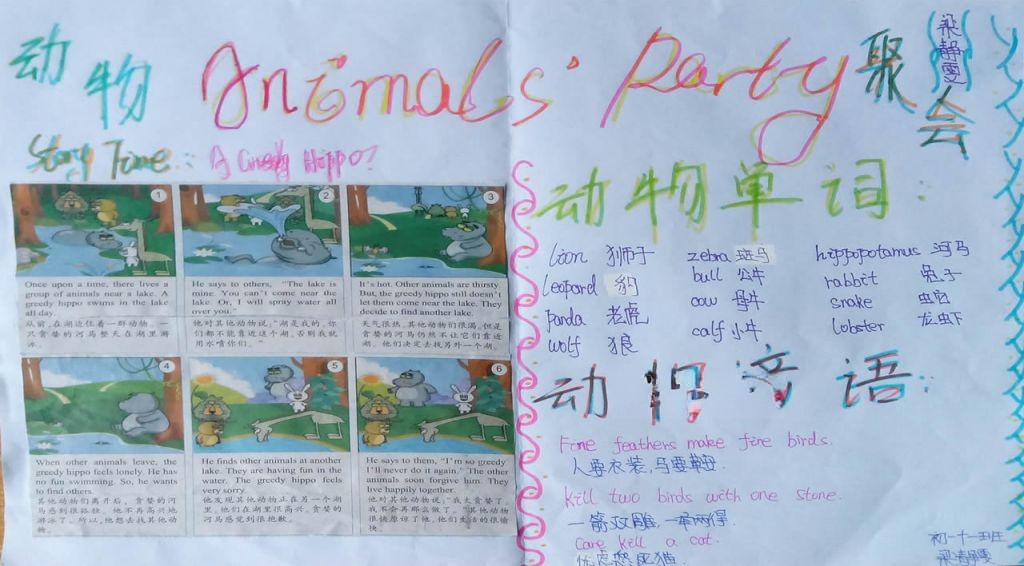 动物 Animals' Party 聚会
梁静雯
Story Time: A Greedy Hippo?
1
Once upon a time, there lives a
group of animals near a lake. A
greedy hippo swims in the lake
all day.
从前，在湖边住着一群动物。一
贪婪的河马整天在湖里游
泳。
2
He says to others, "The lake is
mine. You can't come near the
lake. Or, I will spray water all
over you."
他对其他动物说：“湖是我的，你
们都不能靠近这个湖，否则我就
用水喷你们。”
3
It's hot. Other animals are thirsty.
But, the greedy hippo still doesn't
let them come near the lake. They
decide to find another lake.
天气很热，其他动物们很渴，但是
贪婪的河马仍然不让它们靠近
湖。他们决定去找另外一个湖。
4
When other animals leave, the
greedy hippo feels lonely. He has
no fun swimming. So, he wants
to find others.
其他动物们离开后，贪婪的河
马感到很孤独，他不再高兴地
游泳了。所以，他想去找其他动
物。
5
He finds other animals at another
lake. They are having fun in the
water. The greedy hippo feels
very sorry.
他发现其他动物正在另一个湖
里。他们在湖里很高兴，贪婪的
河马感觉到很抱歉。
6
He says to them, "I'm so greedy
I'll never do it again." The other
animals soon forgive him. They
live happily together.
他对其他动物说：“我太贪婪了，
我不会再那么做了。”其他动物
很快原谅了他，他们生活的很愉
快。
动物单词：
lion 狮子 zebra 斑马 hippopotamus 河马
leopard 豹 bull 公牛 rabbit 兔子
panda 老虎 cow 母牛 snake
wolf 狼 calf 小牛 lobster 龙虾
动 语：
Fine feathers make fine birds.
人要衣装，马要鞍
Kill two birds with one stone.
一箭双雕，一举两得。
Care kill a cat.
忧虑愁死猫。
初一十一班
梁静雯